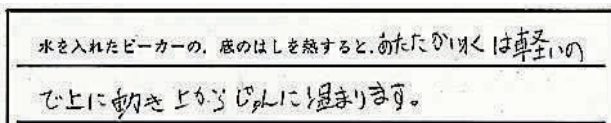 水を入れたビーカーの、底のはしを熱すると、あたたかい水は軽いの
で上に動き上からじゅんに温まります。